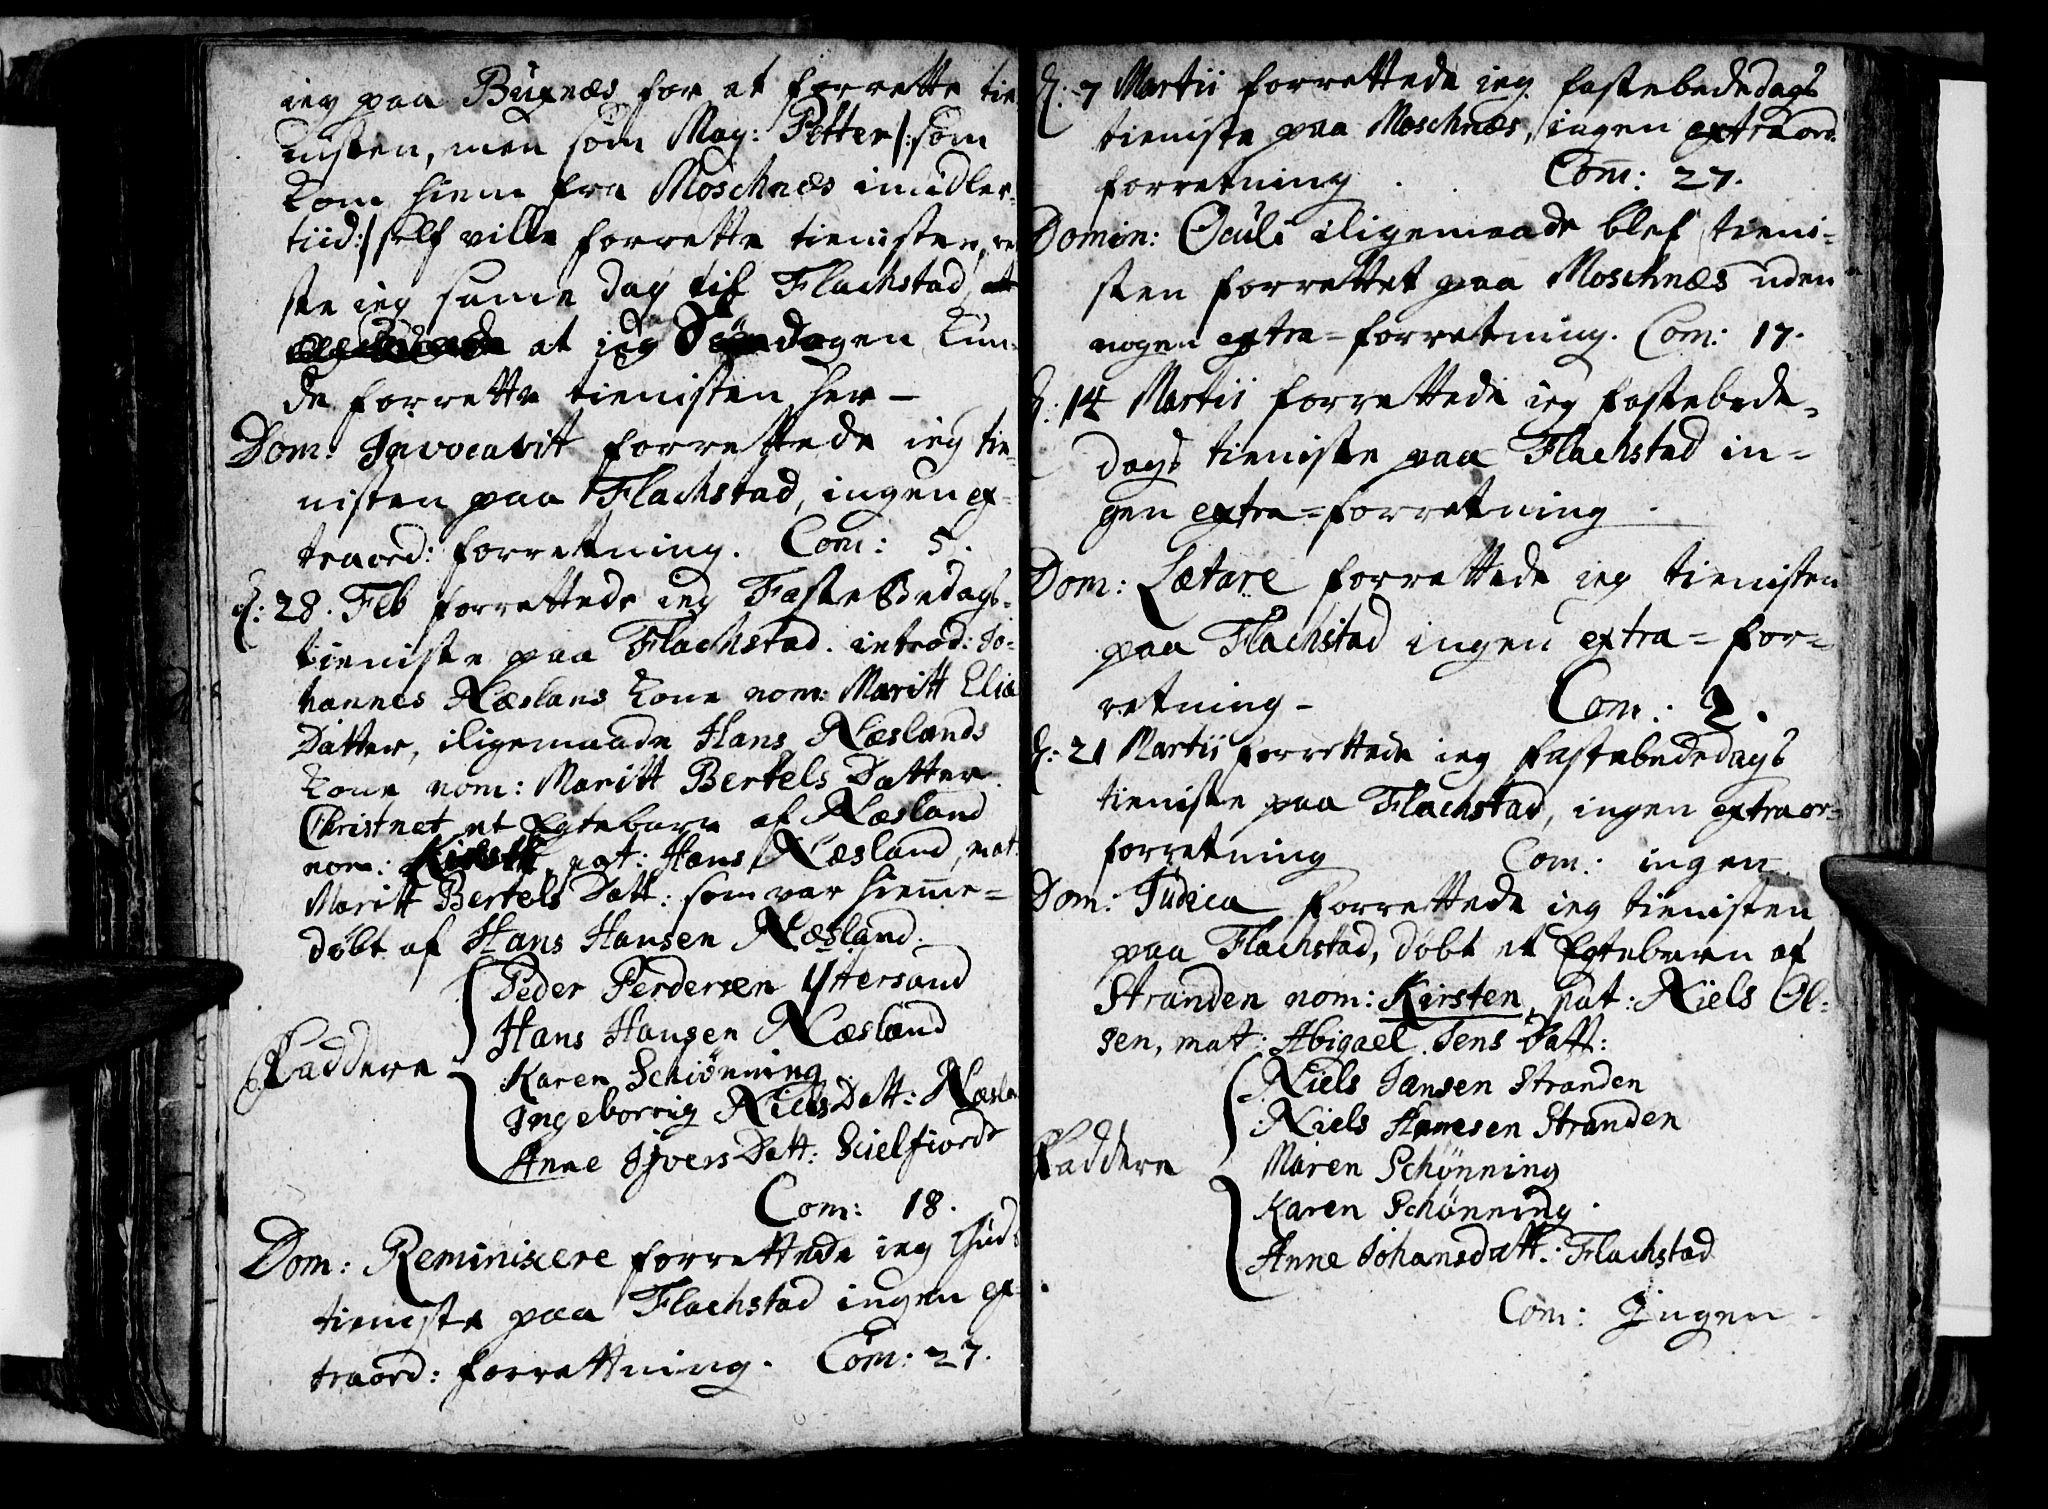 ieg paa Buxnæs for at forrette tie
nisten, men som Mag: Petter /: som
kom hiem fra Moschnæs imidler-
tiid :/ self ville forrette tienisten, rei
ste ieg samme dag til Flachstad
at ieg Søndagen kun-
de forrette tienisten her -
Dom: Invocavit forrettede ieg tie-
nisten paa Flachstad, ingen ex-
traord: forretning. Com: 5.
d: 28. Feb forrettede ieg Faste Bedags-
tieniste paa Flachstad. introd: Jo-
hannes Næslans kone nom: Maritt Elia
Datter, iligemaade Hans Næslands
kone nom: Maritt Bertels Datter
Christnet et Egtebarn af Næsland
nom: pat: Hans Næsland, mat:
Maritt Bertels Datt: som var hieme-
døbt af Hans Hansen Næsland.
Peder Perdersen Yttersand
Hans Hansen Næsland
Faddere Karen Schiønning
Ingeborrig Niels Datt: Næsla
Anne Ifvers Datt: Skielfiord
Com: 18.
Dom: Reminiscere forrettede ieg Guds
tieniste paa Flachstad ingen ex-
traord: forrettning. Com: 27.
d: 7 Martii forrettede ieg fastebededags
tieniste paa Moschnæs, ingen extraord.
forretning. Com: 27.
Domin: Oculi iligemaade blef tieni-
sten forrettet paa Moschnæs uden
nogen extra=forretning. Com: 17.
d: 14 Martii forrettede ieg fastebede-
dags tieniste paa Flachstad in-
gen extra=forretning.
Dom: Lætare forrettede ieg tienisten
paa Flachstad ingen extra=for-
retning - Com: 2.
d: 21 Martii forrettede ieg fastebededags
tieniste paa Flachstad, ingen extraor-
forretning Com: ingen
Dom: Judica forrettede ieg tienisten
paa Flachstad, døbt et Egtebarn af
Stranden nom: Kirsten, pat: Niels Ol-
sen, mat: Abigael Jens Datt:
Niels Jansen Stranden
Niels Hansen Stranden
Faddere Maren Schønning
Karen Schønning.
Anne Johansdatt: Flachstad
Com: Ingen